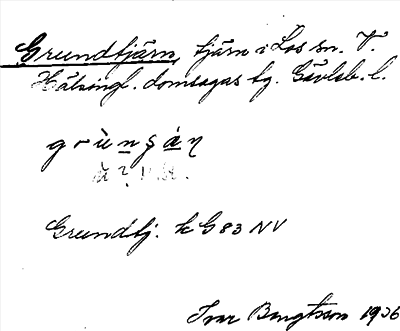 Grundtjärn, tjärn i Los sn. V.
Hälsingl. domsagas tg. Gävleb. l.
grùnʂáη
Grundtj. k G 83 NV
Ivar Bengtsson 1936